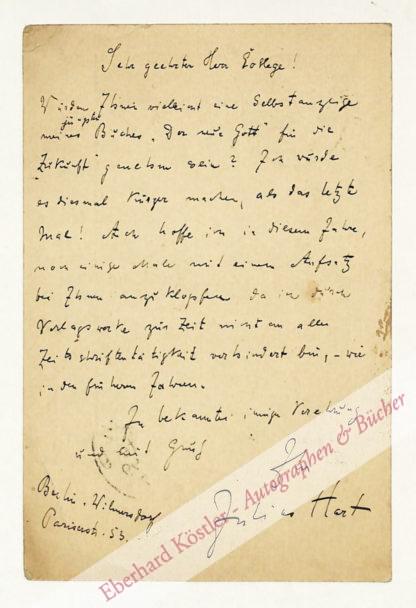 Sehr geehrter Herr College!
Würden Ihnen vielleicht eine Selbstanzeige
meines Buches "Der neue Gott" für die
"Zukunft" genehm sein? Ich würde
es diesmal kürzer machen, als das letzte
Mal! Auch hoffe ich in diesem Jahre,
noch einige Male mit einem Aufsatz
bei Ihnen anzuklopfen da ich durch
Verlagswerke zur Zeit nicht an aller
Zeitschriftentätigkeit verhindert bin, – wie
in den früheren Jahren.
In bekannter inniger Verehrung
und mit Gruß
Ihr
Julius Hart
Berlin-Wilmersdorf
Pariserstr. 53.
Eberhard Köstler - Autographen & Bücher